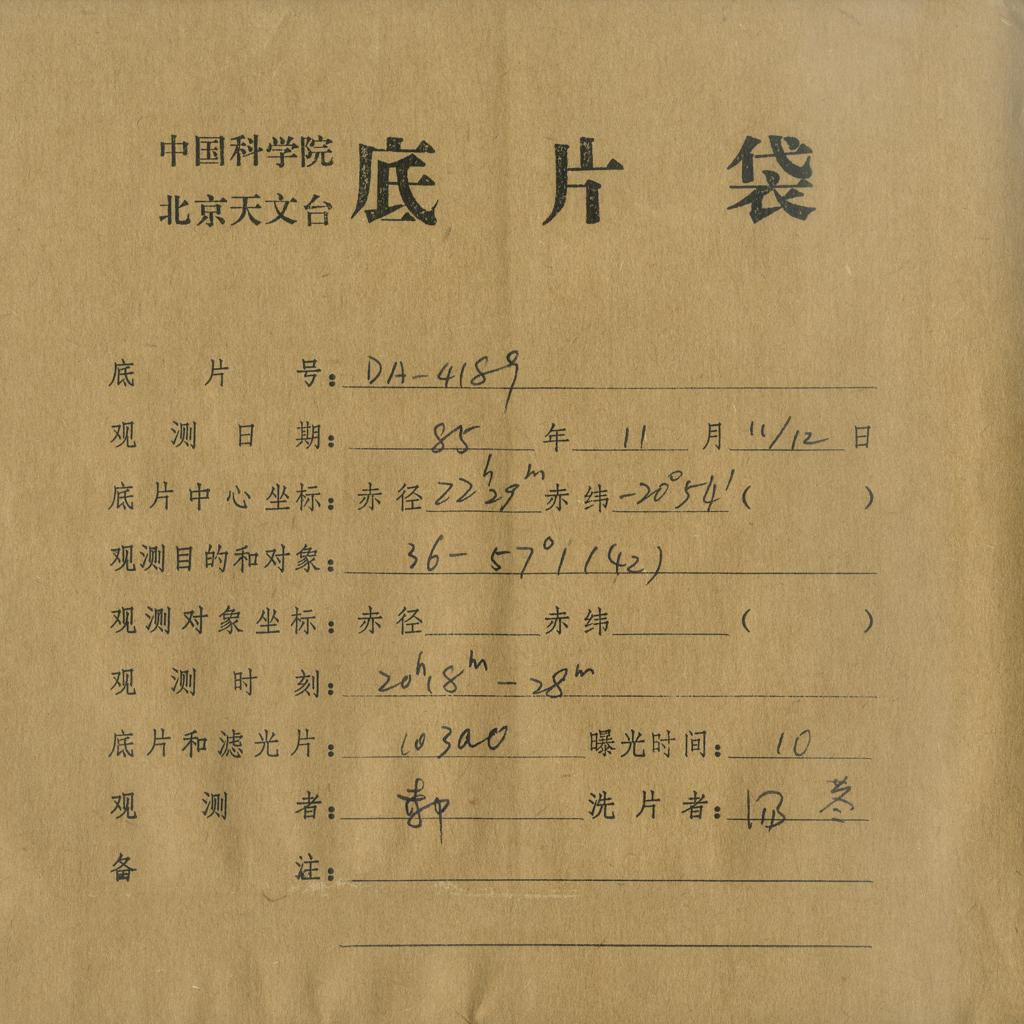 中国科学院
北京天文台
底片袋
底片号：DA-4189
观测日期：85年11月11/12日
底片中心坐标：赤径22ʰ29ᵐ赤纬-20°54′（ ）
观测目的和对象：36-57°1(42)
观测对象坐标：赤径 赤纬 （ ）
观测时刻：20ʰ18ᵐ-28ᵐ
底片和滤光片：103aO 曝光时间：10
观测者： 洗片者：
备注：